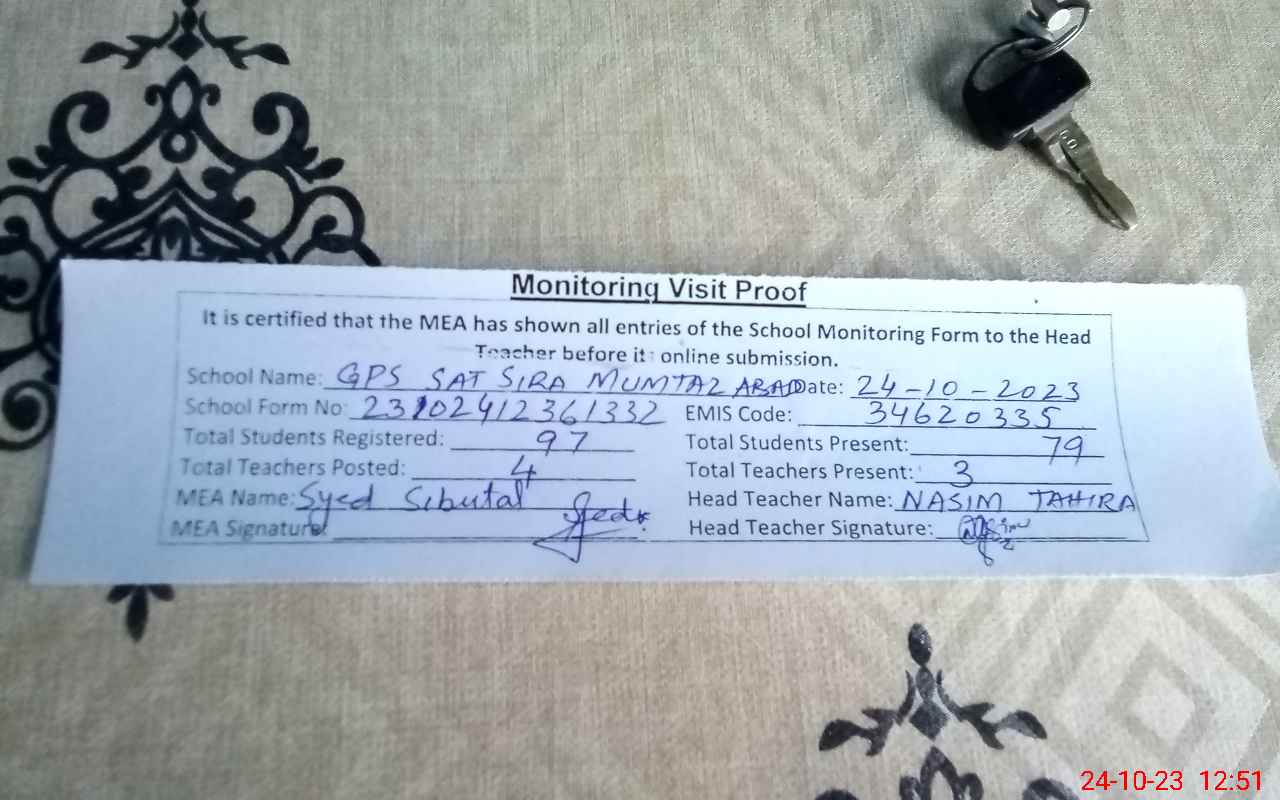 Monitoring Visit Proof
It is certified that the MEA has shown all entries of the School Monitoring Form to the Head
Teacher before it online submission.
School Name: GPS SAT SIRA MUMTAZ ABAD Date: 24-10-2023
School Form No: 23102412361332 EMIS Code: 34620335
Total Students Registered: 97 Total Students Present: 79
Total Teachers Posted: 4 Total Teachers Present: 3
MEA Name: Syed Sibutal Head Teacher Name: NASIM TAHIRA
MEA Signature: Syed Head Teacher Signature:
24-10-23 12:51